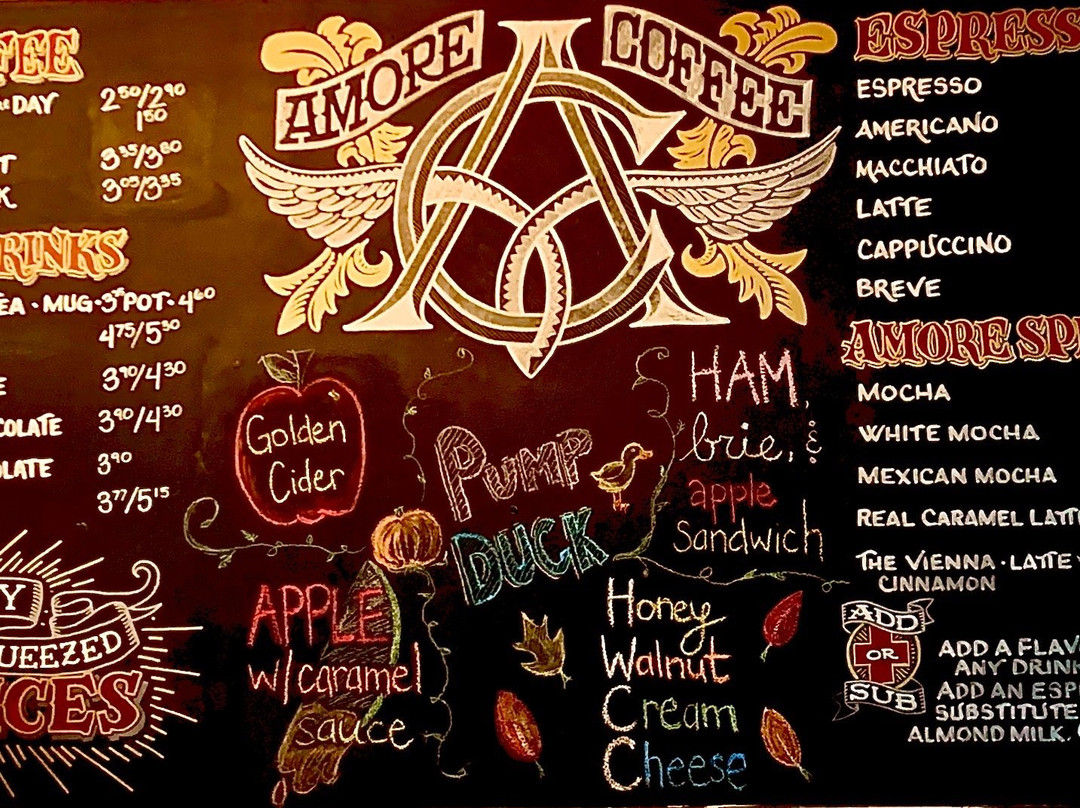 AMORE COFFEE
AC
DAY 2⁵⁰/2⁹⁰
1⁵⁰
3³⁵/3⁸⁰
3⁰⁵/3³⁵
MUG·3³⁵ POT·4⁶⁰
4⁷⁵/5³⁰
3⁹⁰/4³⁰
3⁹⁰/4³⁰
3⁹⁰
3⁷⁷/5¹⁵
Golden
Cider
PUMP
DUCK
HAM,
brie, &
apple
sandwich
APPLE
w/caramel
sauce
Honey
Walnut
Cream
Cheese
ESPRESS
ESPRESSO
AMERICANO
MACCHIATO
LATTE
CAPPUCCINO
BREVE
AMORE SP
MOCHA
WHITE MOCHA
MEXICAN MOCHA
REAL CARAMEL LATT
THE VIENNA·LATTE
CINNAMON
ADD
OR
SUB
ADD A FLAV
ANY DRIN
ADD AN ESP
SUBSTITUTE
ALMOND MILK,